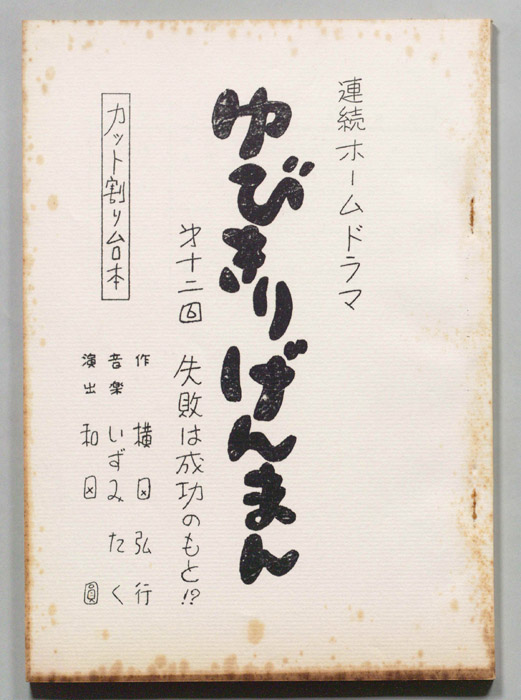 連続ホームドラマ
ゆびきりげんまん
第十二回 失敗は成功のもと!?
カット割り台本
作 横田弘行
音楽 いずみたく
演出 和田圓